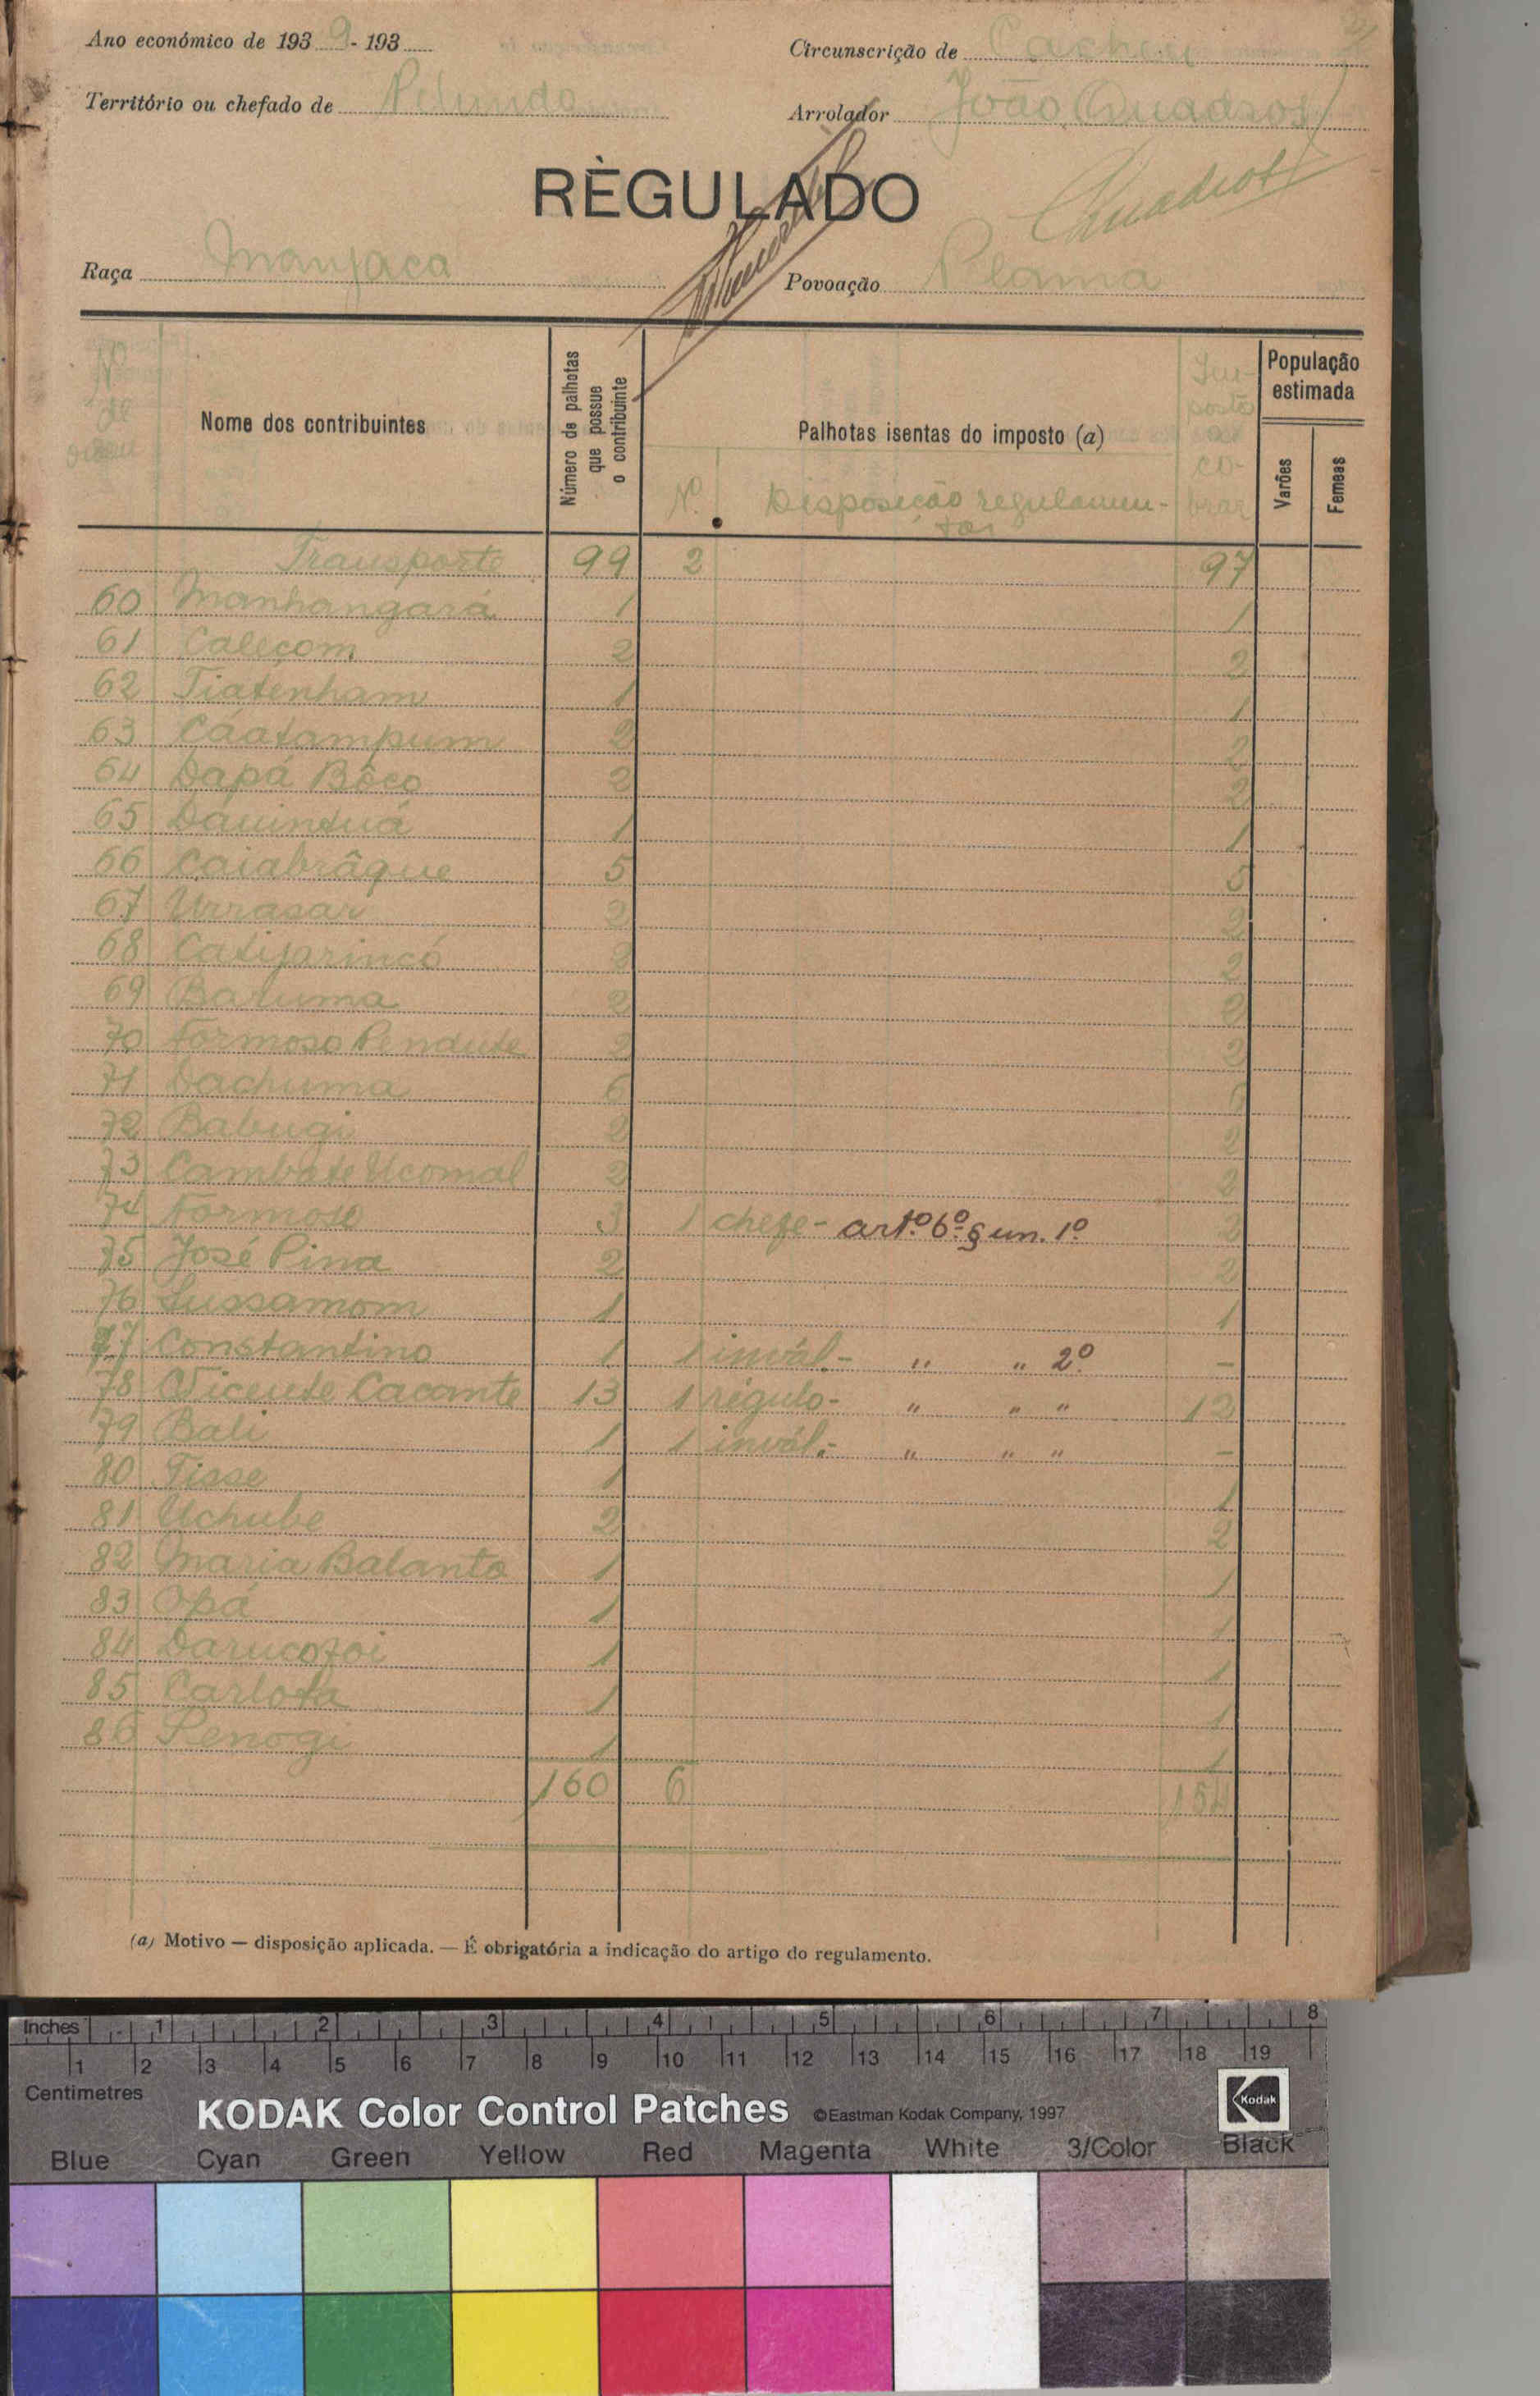 Ano económico de 1939-193
Circunscrição de Cacheu
Território ou chefado de Pelundo
Arrolador João Quadros
RÈGULADO
Quadros
Raça Manjaca
Povoação Pelama
Nº de ordem
Nome dos contribuintes
Número de palhotas que possue o contribuinte
Palhotas isentas do imposto (a)
Nº. Disposição regulamentar
Imposto a cobrar
População estimada
Varões
Femeas
Transporte 99 2 97
60 Manhangará 1 1
61 Caleçom 2 2
62 Tiatenham 1 1
63 Cáatampum 2 2
64 Dapá Bôco 2 2
65 Dauintuá 1 1
66 Caiabrâque 5 5
67 Urrasar 2 2
68 Catijarincó 2 2
69 Baruma 2 2
70 Formoso Pendute 2 2
71 Dachuma 6
72 Babugi 2 2
73 Cambate Ucomal 2 2
74 Formoso 3 1 chefe - artº. 6º. § un. 1º 2
75 José Pina 2 2
76 Sussamom 1 1
77 Constantino 1 1 invál. - " " 2º -
78 Vicente Cacante 13 1 régulo - " " " 12
79 Bali 1 1 invál. - " " " -
80 Tisse 1 1
81 Uchube 2 2
82 Maria Balanta 1 1
83 Opá 1 1
84 Darucofoi 1 1
85 Carlota 1 1
86 Penogi 1 1
160 6 154
(a) Motivo — disposição aplicada. — É obrigatória a indicação do artigo do regulamento.
Inches 1 2 3 4 5 6 7 8
1 2 3 4 5 6 7 8 9 10 11 12 13 14 15 16 17 18 19
Centimetres
KODAK Color Control Patches ©Eastman Kodak Company, 1997 Kodak
Blue Cyan Green Yellow Red Magenta White 3/Color Black